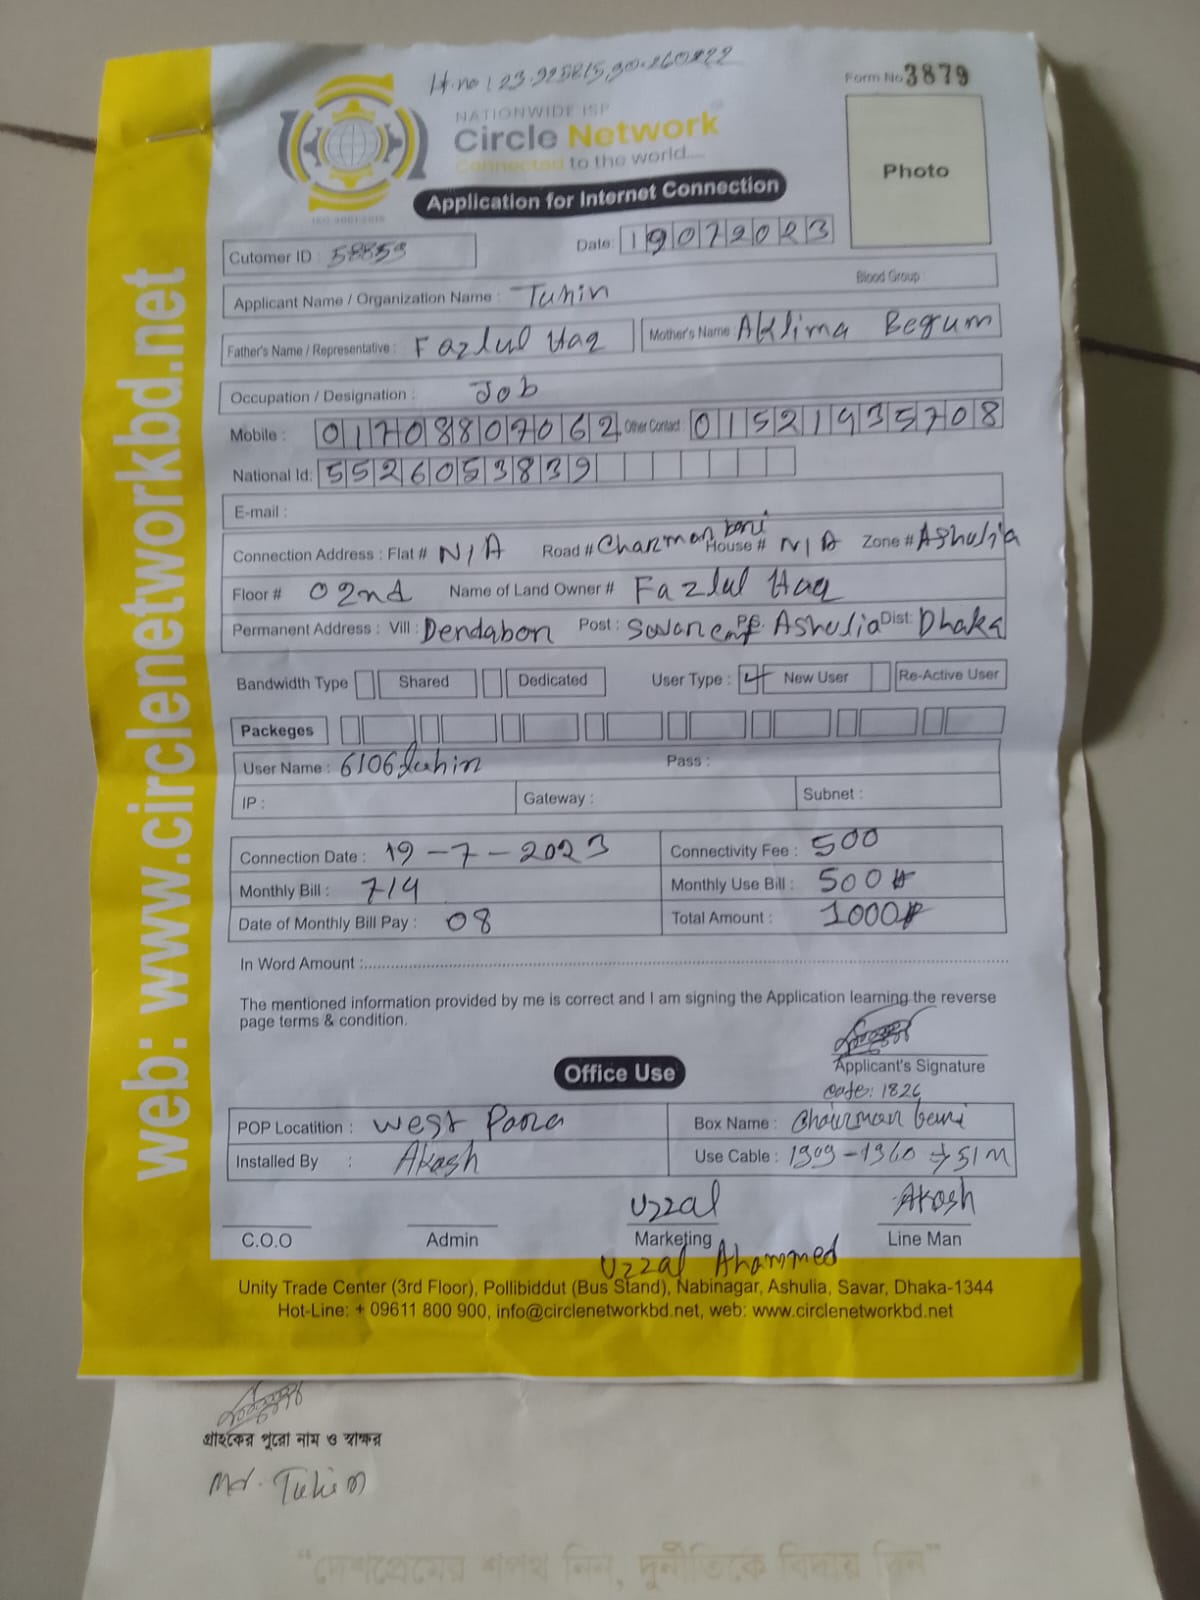 Form No 3879
NATIONWIDE ISP
Circle Network
Connected to the world....
Photo
Application for Internet Connection
ISO 9001:2015
Cutomer ID : 58859
Date: 19072023
Blood Group :
Applicant Name / Organization Name : Tuhin
Father's Name / Representative : Fazlul Haq Mother's Name : Aklima Begum
Occupation / Designation : Job
Mobile : 01708807062 Other Contact : 01521935708
National Id: 5526053839
E-mail :
Connection Address : Flat # N/A Road # Charman bari House # N/A Zone # Ashulia
Floor # 02nd Name of Land Owner # Fazlul Haq
Permanent Address : Vill : Dendabon Post : Savar P.S. Ashulia Dist: Dhaka
Bandwidth Type Shared Dedicated User Type : New User Re-Active User
Packeges
User Name : 6106tuhin Pass :
IP : Gateway : Subnet :
Connection Date : 19-7-2023 Connectivity Fee : 500
Monthly Bill : 714 Monthly Use Bill : 500
Date of Monthly Bill Pay : 08 Total Amount : 1000
In Word Amount :
The mentioned information provided by me is correct and I am signing the Application learning the reverse
page terms & condition.
Applicant's Signature
Office Use
code: 1826
POP Locatition : West Para Box Name : Chairman bari
Installed By : Akash Use Cable : 1909-1960 → 51 M
Uzzal Akash
C.O.O Admin Marketing Line Man
Uzzal Ahammed
Unity Trade Center (3rd Floor), Pollibiddut (Bus Stand), Nabinagar, Ashulia, Savar, Dhaka-1344
Hot-Line: + 09611 800 900, info@circlenetworkbd.net, web: www.circlenetworkbd.net
web: www.circlenetworkbd.net
গ্রাহকের পুরো নাম ও স্বাক্ষর
Md. Tuhin
“দেশপ্রেমের শপথ নিন, দুর্নীতিকে বিদায় দিন”